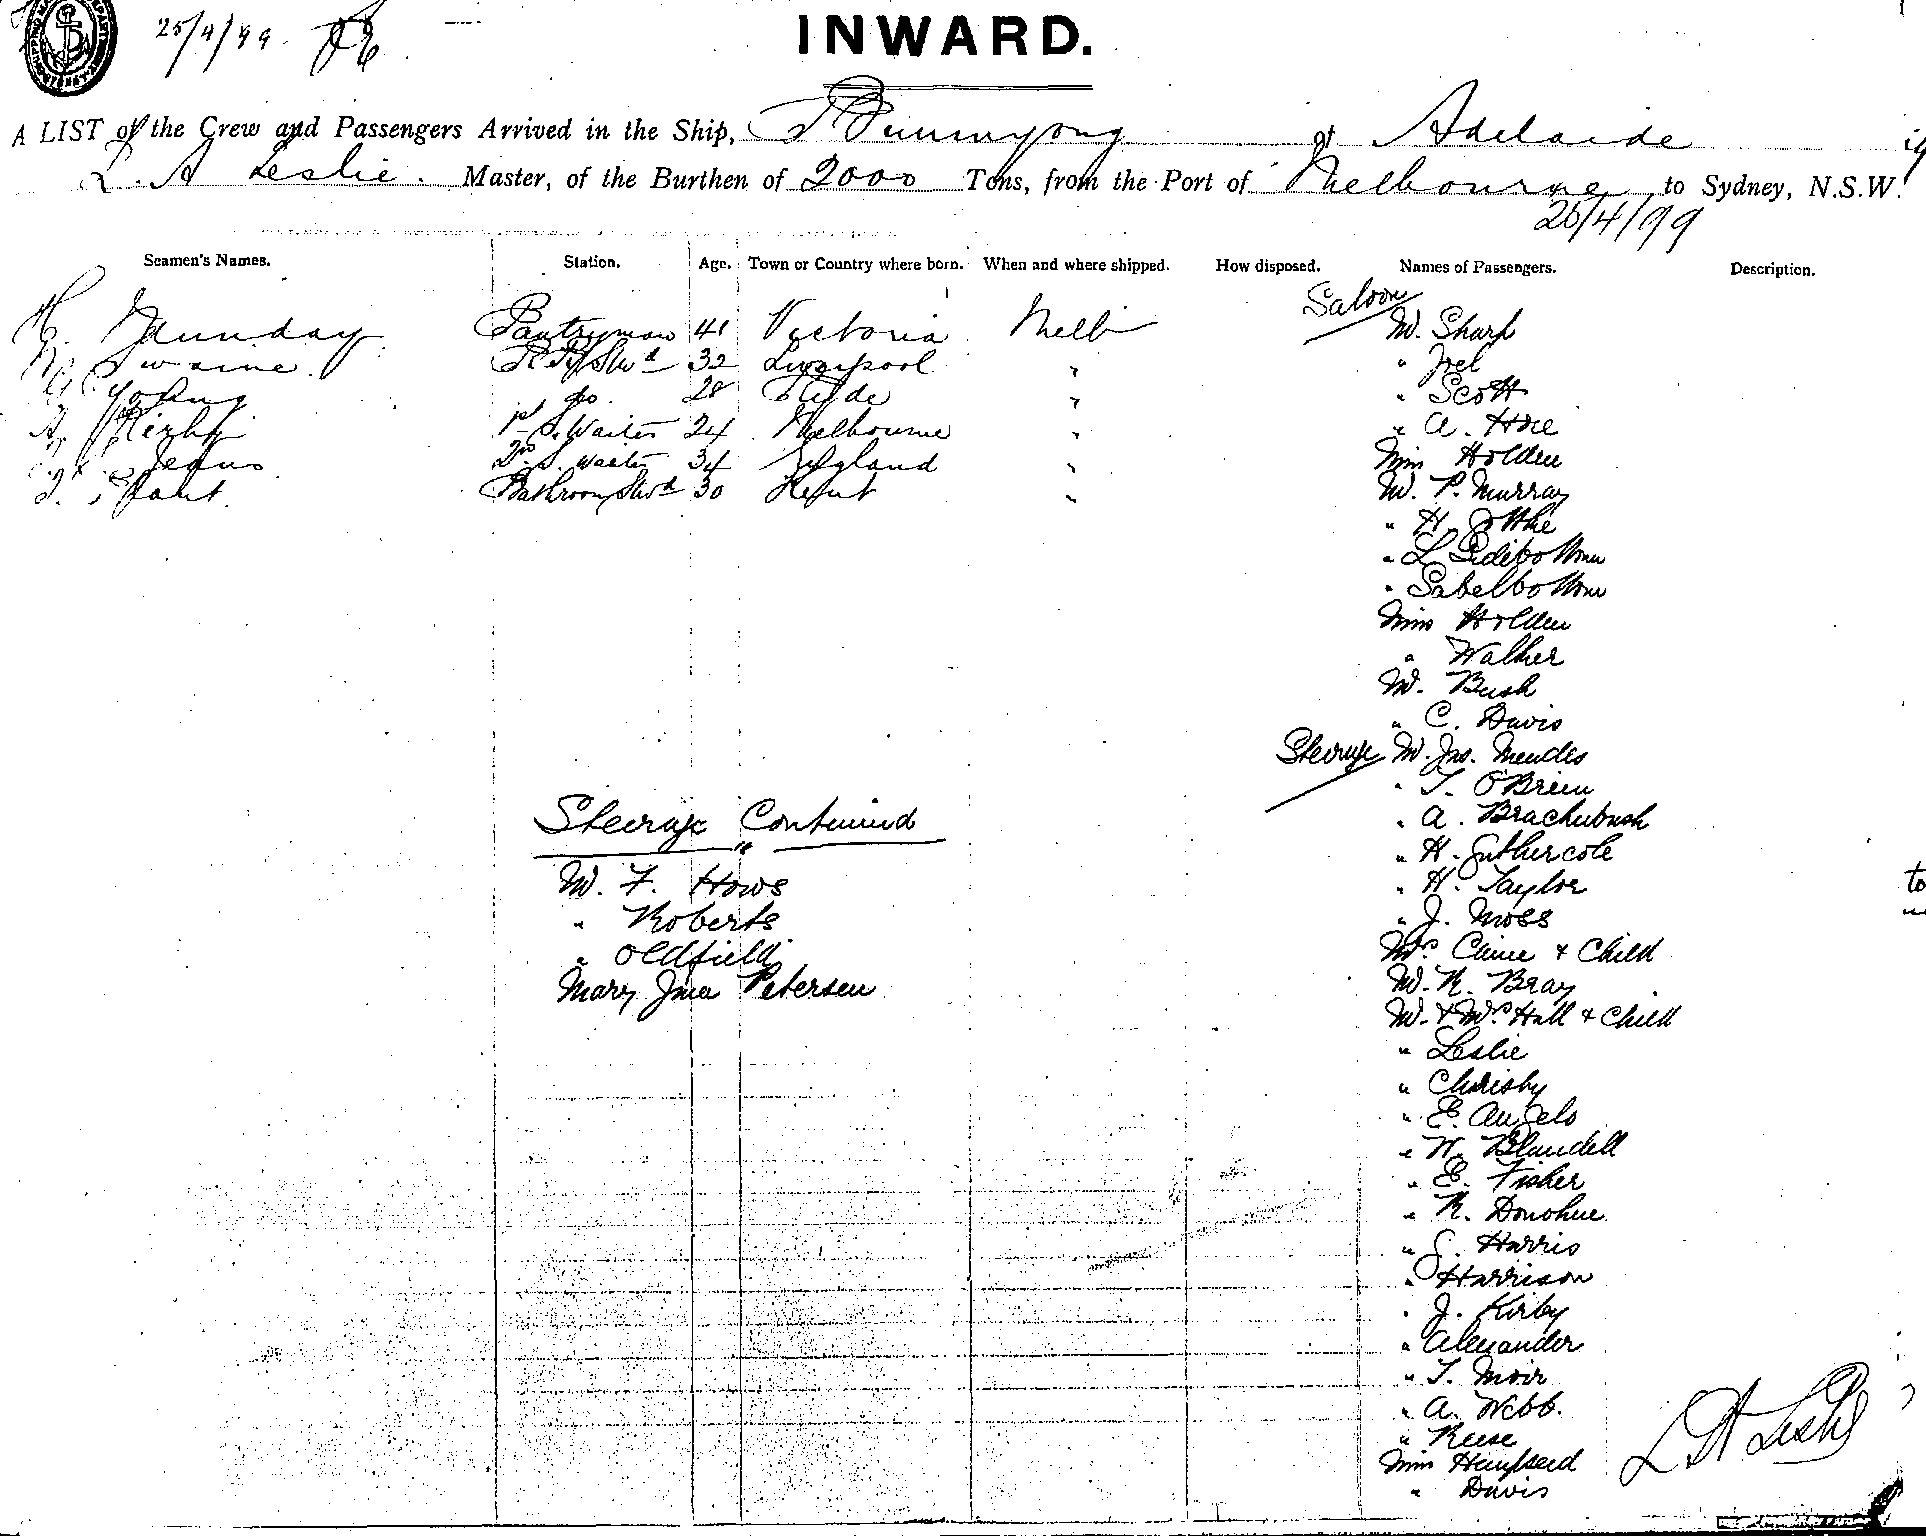 25/4/99.
INWARD.
A LIST of the Crew and Passengers Arrived in the Ship, of Adelaide
L. A Leslie. Master, of the Burthen of 2000 Tons, from the Port of Melbourne to Sydney, N.S.W.
25/4/99
Seamen's Names. Station. Age. Town or Country where born. When and where shipped. How disposed. Names of Passengers. Description.
Saloon
Pantryman 41 Victoria Melb M. Sharp
Swaine 32 Liverpool "
Young do. 28 Clyde " " Scott
1st S. Waiter 24 Melbourne " " A. Hoe
Jeans 2nd S. Waiter 34 England " Miss Holden
Bathroom Stwd 30 Kent " M. P. Murray
" H.
" L. Sidebottom
"
Miss Holden
" Walker
M. Bush
" C. Davis
Steerage M. Jno. Mendes
" T. O'Brien
" A.
" H. Guthercole
" H. Taylor
" J. Moss
Mrs Caine & Child
M. R. Bray
M. & Mrs Hall & Child
" Leslie
"
" E. Angelo
" W. Blundell
" E. Fisher
" R. Donohue
" Harris
" Harrison
" J. Kirby
" Alexander
" T. Moir
" A. Webb.
" Reese
Miss
" Davis
Steerage Continued
M. F. Hows
" Roberts
" Oldfield
Mary Jane Petersen
L A Leslie